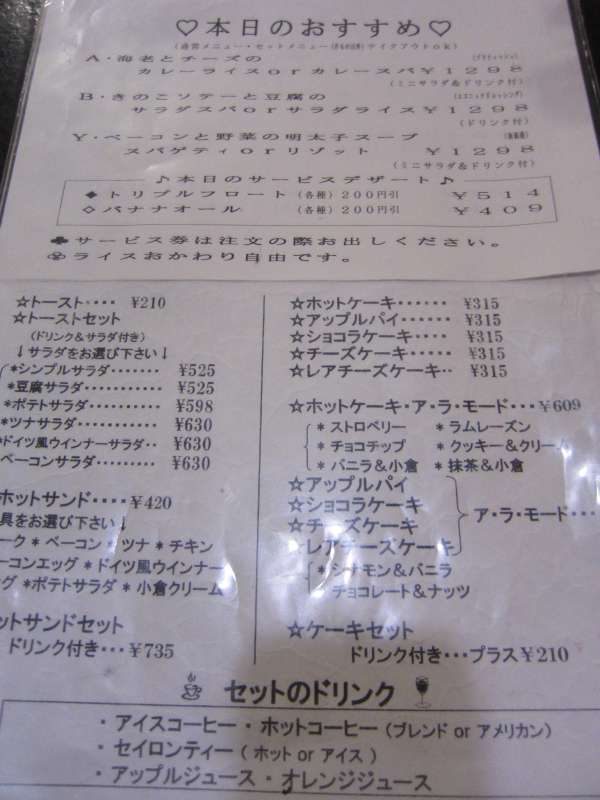 ♡本日のおすすめ♡
A・海老とチーズの
カレーライスorカレースパ¥1298
(ミニサラダ&ドリンク付)
B・きのこソテーと豆腐の
サラダスパorサラダライス¥1298
(ドリンク付)
Y・ベーコンと野菜の明太子スープ
スパゲティorリゾット ¥1298
(ミニサラダ&ドリンク付)
♪本日のサービスデザート♪
◆トリプルフロート(各種)200円引 ¥514
◇バナナオール (各種)200円引 ¥409
♣サービス券は注文の際お出しください。
ライスおかわり自由です。
☆トースト‥‥ ¥210
☆トーストセット
(ドリンク&サラダ付き)
↓サラダをお選び下さい↓
*シンプルサラダ‥‥‥‥ ¥525
*豆腐サラダ‥‥‥‥‥‥ ¥525
*ポテトサラダ‥‥‥‥‥ ¥598
*ツナサラダ‥‥‥‥‥‥ ¥630
*ドイツ風ウインナーサラダ‥ ¥630
ベーコンサラダ‥‥‥‥‥ ¥630
ホットサンド‥‥¥420
具をお選び下さい↓
ーク * ベーコン * ツナ * チキン
ーコンエッグ * ドイツ風ウインナー
グ *ポテトサラダ * 小倉クリーム
ットサンドセット
ドリンク付き‥・¥735
☆ホットケーキ‥‥‥ ¥315
☆アップルパイ‥‥‥ ¥315
☆ショコラケーキ‥‥ ¥315
☆チーズケーキ‥‥‥ ¥315
☆レアチーズケーキ‥ ¥315
☆ホットケーキ・ア・ラ・モード‥・¥609
* ストロベリー * ラムレーズン
* チョコチップ * クッキー&クリーム
* バニラ&小倉 * 抹茶&小倉
☆アップルパイ
☆ショコラケーキ
☆チーズケーキ
☆レアチーズケーキ
ア・ラ・モード‥・
* シナモン&バニラ
チョコレート&ナッツ
☆ケーキセット
ドリンク付き‥・プラス¥210
セットのドリンク
・アイスコーヒー・ホットコーヒー(ブレンド or アメリカン)
・セイロンティー(ホット or アイス)
・アップルジュース・オレンジジュース